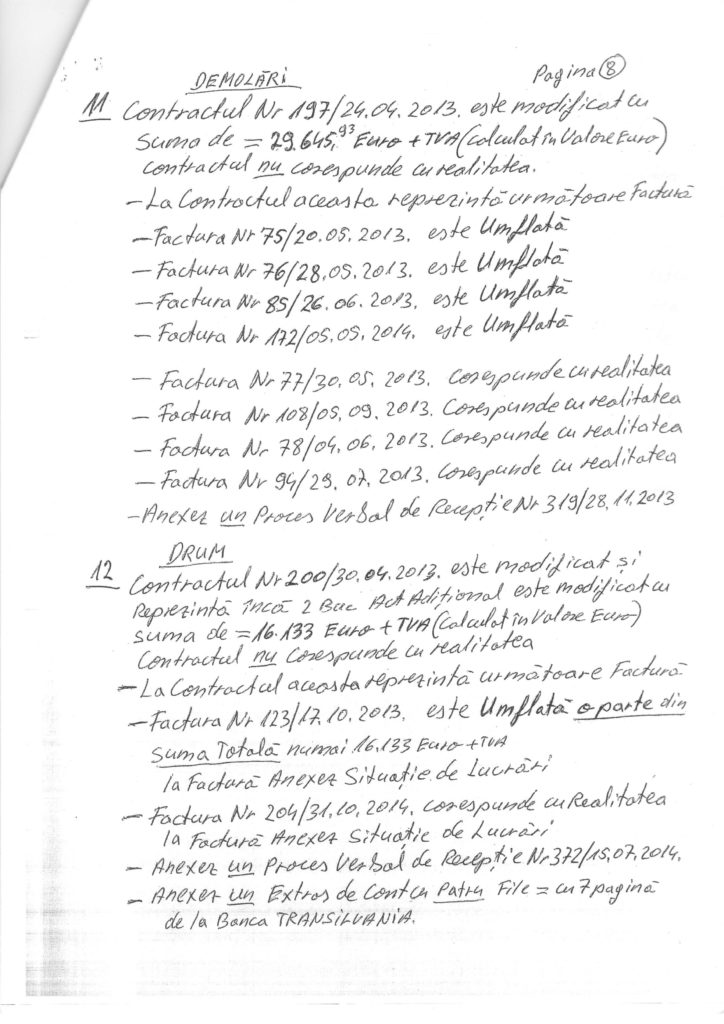 DEMOLĂRI Pagina 8
11 Contractul Nr 197/24.04.2013. este modificat cu
suma de = 29.645,93 Euro + TVA (Calculat în Valore Euro)
contractul nu corespunde cu realitatea.
- La Contractul aceasta reprezintă următoare Factură
- Factura Nr 75/20.05.2013. este Umflată
- Factura Nr 76/28.05.2013. este Umflată
- Factura Nr 85/26.06.2013. este Umflată
- Factura Nr 172/05.05.2014. este Umflată
- Factura Nr 77/30.05.2013. Corespunde cu realitatea
- Factura Nr 108/05.09.2013. Corespunde cu realitatea
- Factura Nr 78/04.06.2013. Corespunde cu realitatea
- Factura Nr 94/29.07.2013. Corespunde cu realitatea
- Anexez un Proces Verbal de Recepție Nr 319/28.11.2013
DRUM
12 Contractul Nr 200/30.04.2013. este modificat și
Reprezintă încă 2 Buc Act Adițional este modificat cu
suma de = 16.133 Euro + TVA (Calculat în Valore Euro)
Contractul nu Corespunde cu realitatea
- La Contractul aceasta reprezintă următoare Factură
- Factura Nr 123/17.10.2013. este Umflată o parte din
Suma Totală numai 16.133 Euro + TVA
la Factură Anexez Situație de Lucrări
- Factura Nr 204/31.10.2014. corespunde cu Realitatea
la Factură Anexez Situație de Lucrări
- Anexez un Proces Verbal de Recepție Nr 372/15.07.2014.
- Anexez un Extras de Cont cu Patru File = cu 7 pagină
de la Banca TRANSILVANIA.